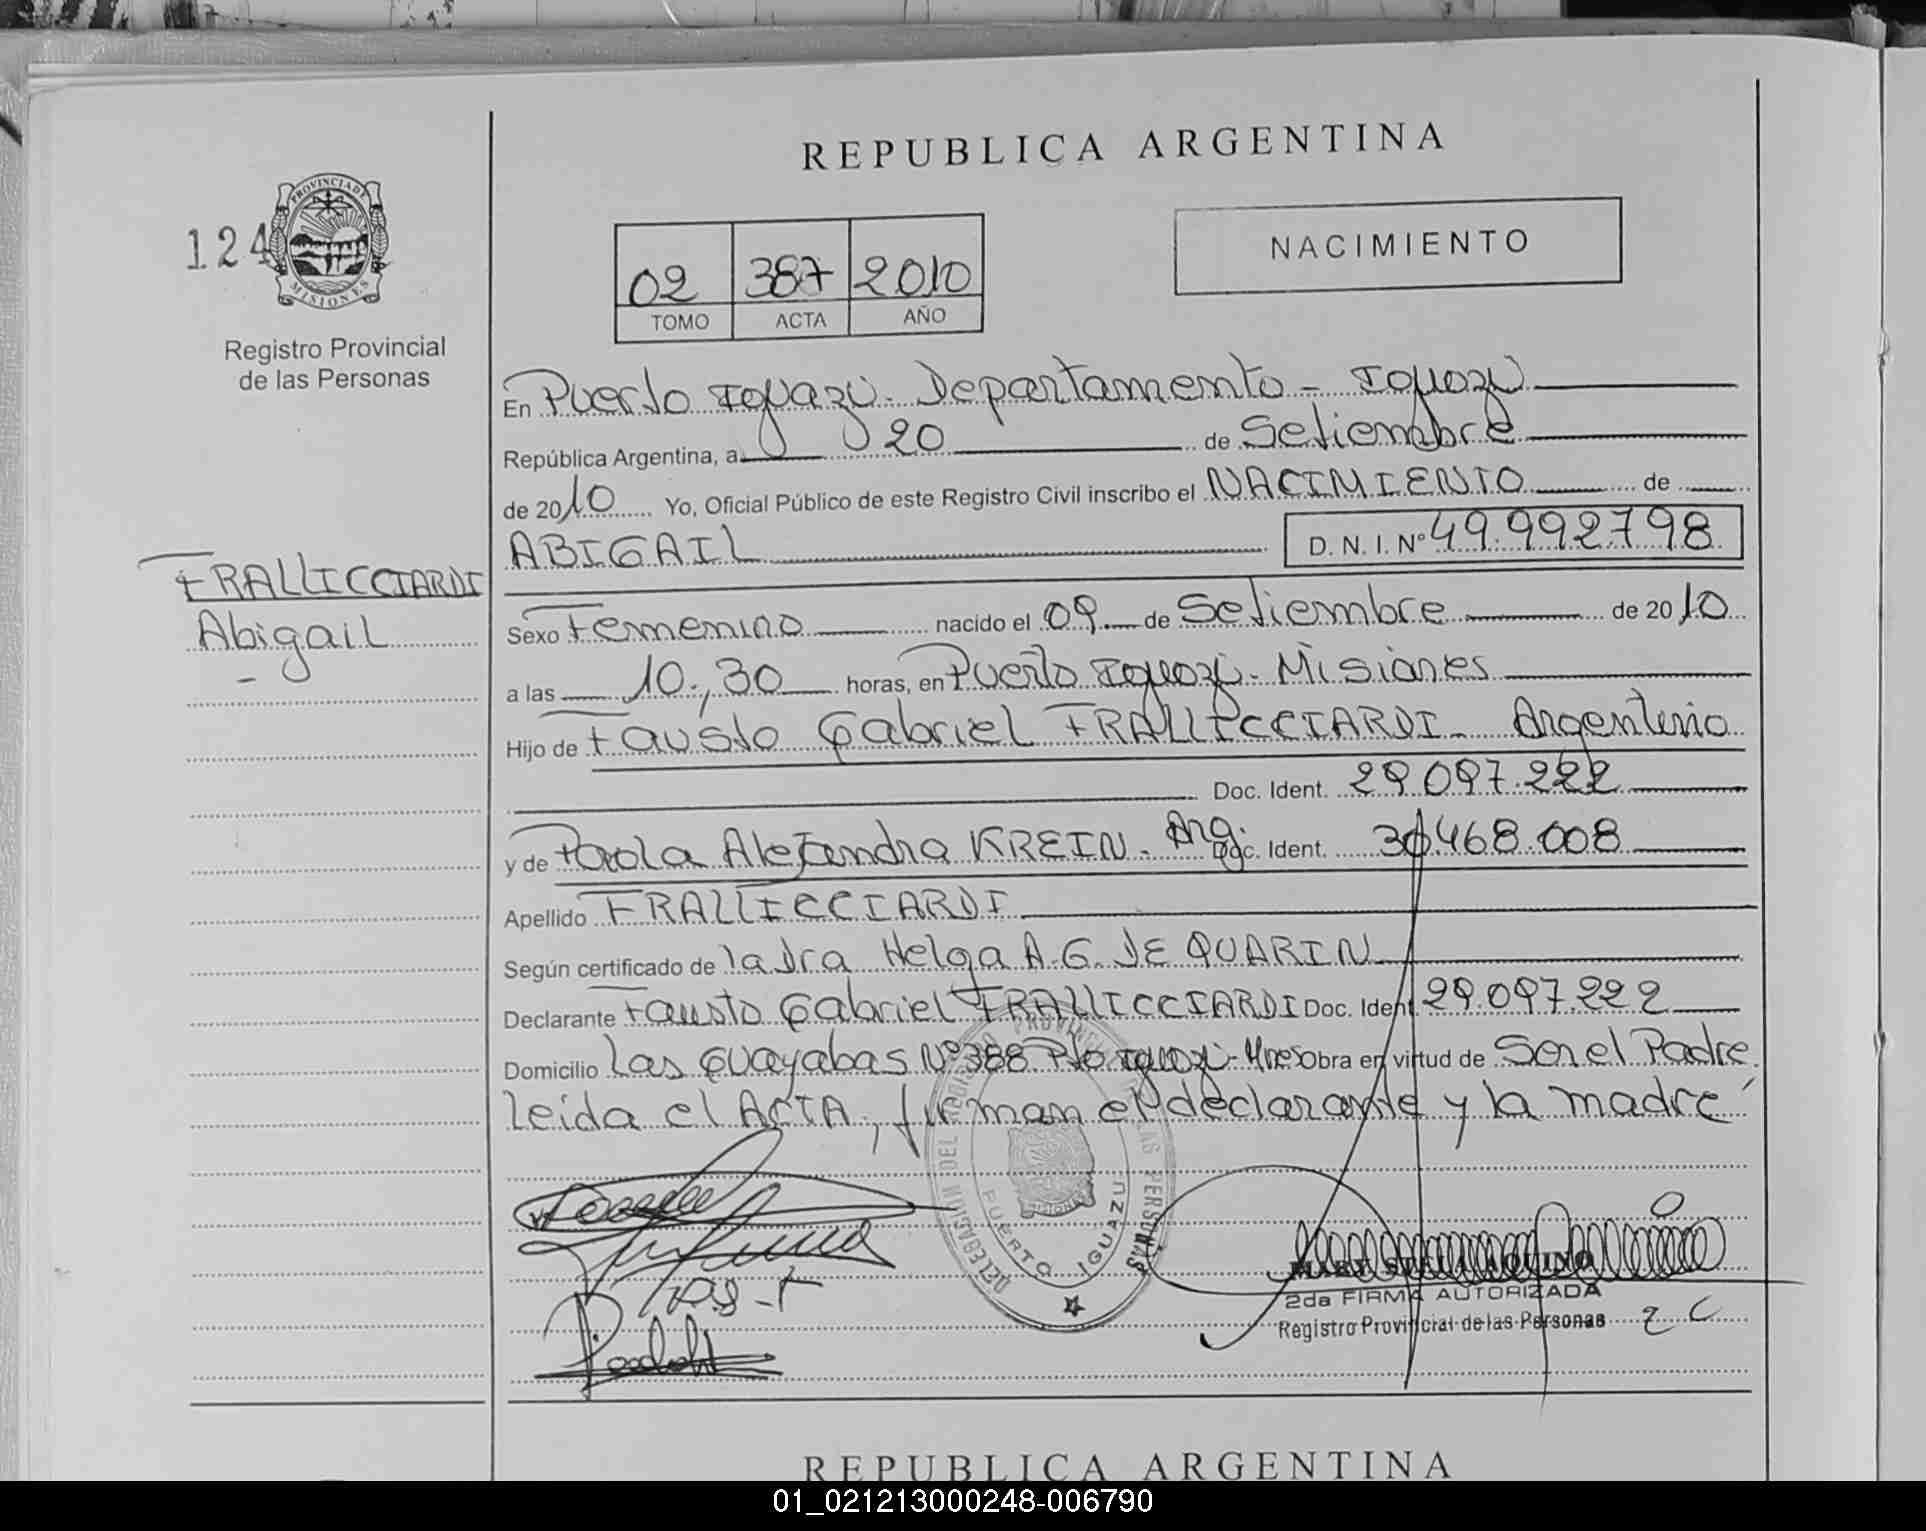 REPUBLICA ARGENTINA
124
PROVINCIA DE MISIONES
Registro Provincial
de las Personas
02 387 2010
TOMO ACTA AÑO
NACIMIENTO
En Puerto Iguazú - Departamento - Iguazú
República Argentina, a 20 de Setiembre
de 2010 Yo, Oficial Público de este Registro Civil inscribo el NACIMIENTO de
ABIGAIL D. N. I. Nº 49.992798
FRALLICCIARDI
Abigail
Sexo Femenino nacido el 09 de Setiembre de 2010
a las 10,30 horas, en Puerto Iguazú - Misiones
Hijo de Fausto Gabriel FRALLICCIARDI - Argentino
Doc. Ident. 29.097.222
y de Paola Alejandra KREIN - Arg. Doc. Ident. 30.468.008
Apellido FRALLICCIARDI
Según certificado de la Dra Helga A. G. DE QUARIN
Declarante Fausto Gabriel FRALLICCIARDI Doc. Ident. 29.097.222
Domicilio Las Guayabas Nº 388 Pto Iguazú - Mnes Obra en virtud de Ser el Padre
leida el ACTA, firman el declarante y la madre
DELEGACION DEL REGISTRO PROVINCIAL DE LAS PERSONAS
PUERTO IGUAZU
2da FIRMA AUTORIZADA
Registro Provincial de las Personas
REPUBLICA ARGENTINA
01_021213000248-006790